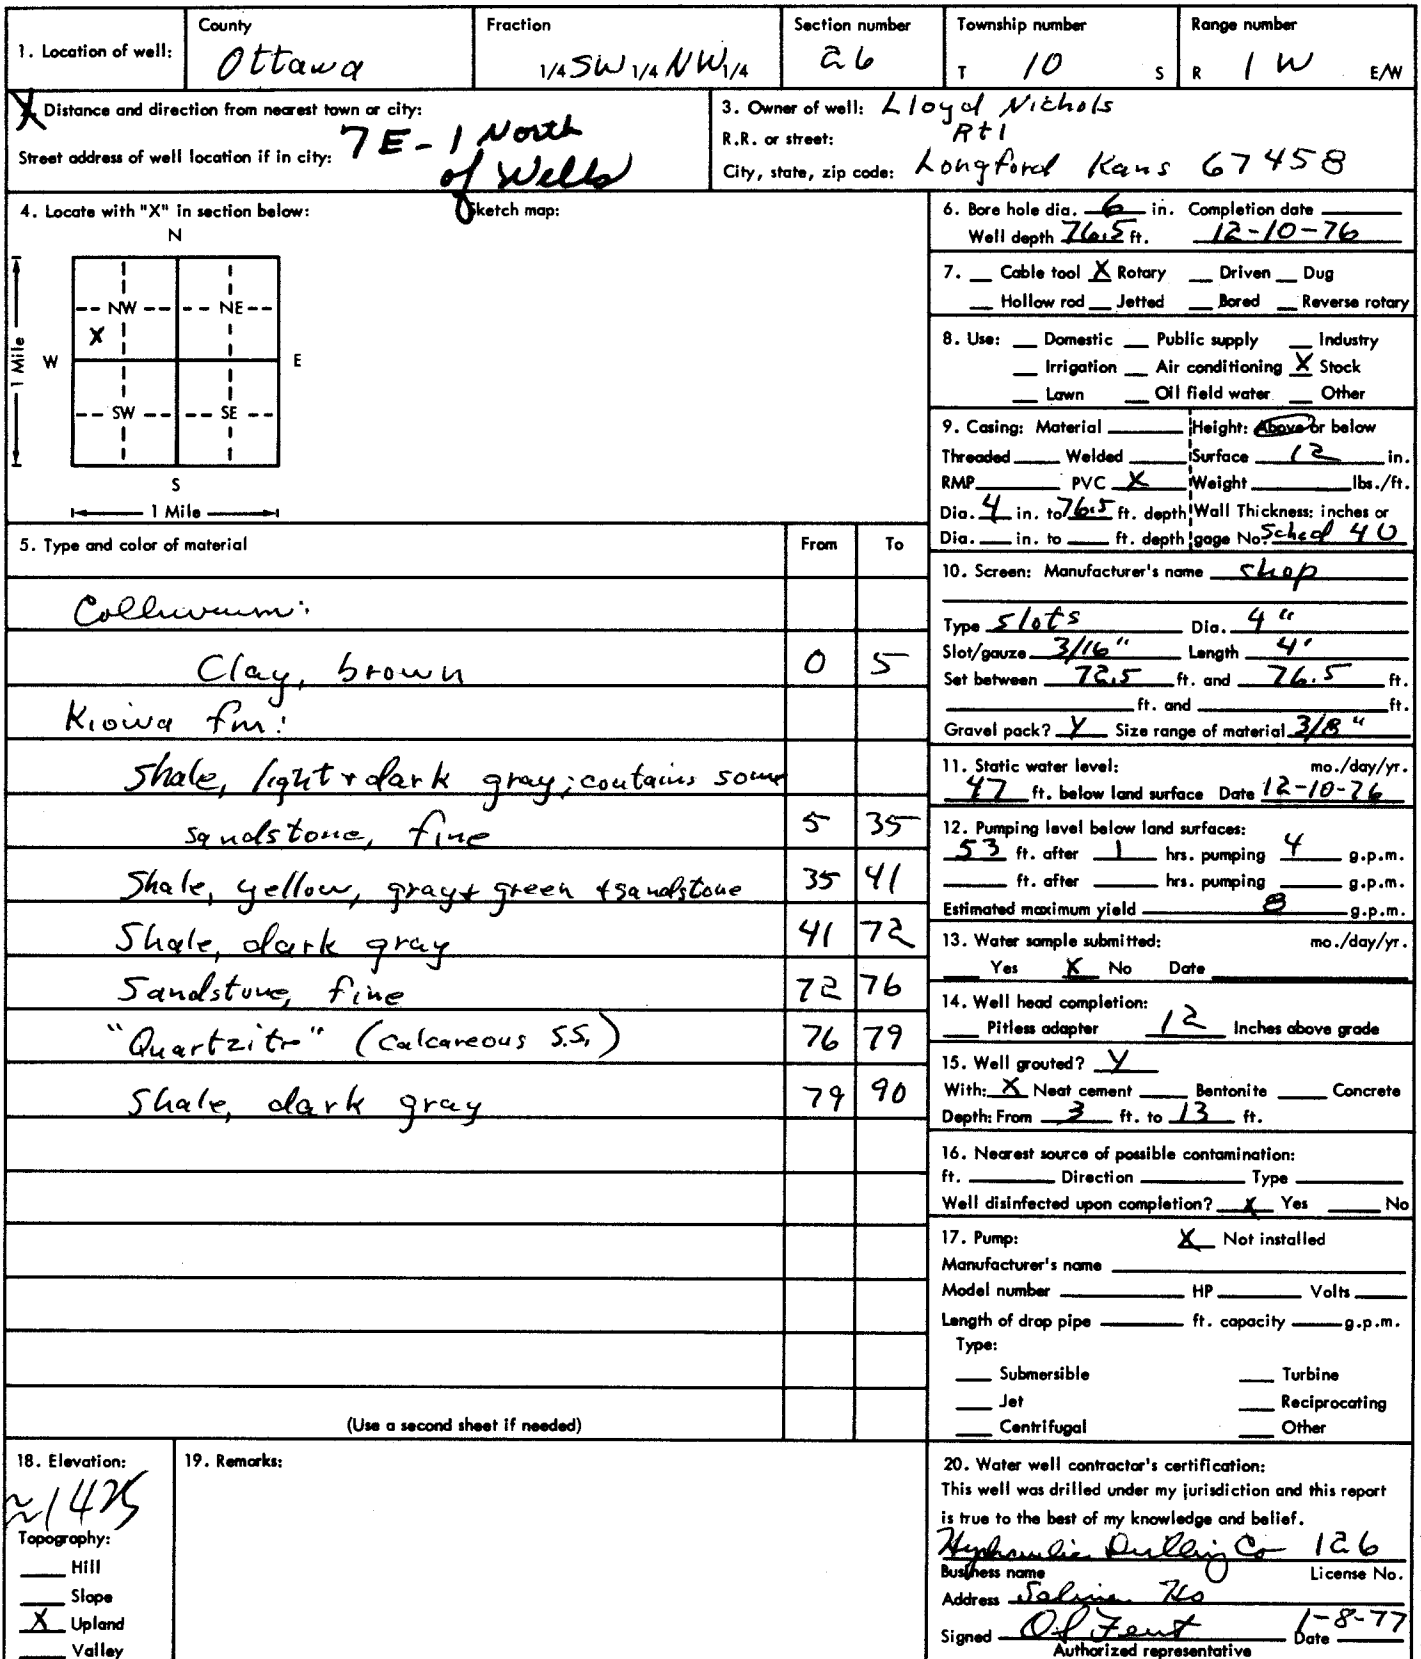 1. Location of well:
County
Ottawa
Fraction
1/4 SW 1/4 NW 1/4
Section number
26
Township number
T 10 S
Range number
R 1 W E/W
X Distance and direction from nearest town or city:
Street address of well location if in city:
7 E - 1 North
of Wells
3. Owner of well: Lloyd Nichols
R.R. or street: Rt 1
City, state, zip code: Longford Kans 67458
4. Locate with "X" in section below:
Sketch map:
N
NW NE
X
W E
SW SE
S
1 Mile
1 Mile
5. Type and color of material From To
Colluvium:
Clay, brown 0 5
Kiowa fm:
Shale, light + dark gray; contains some
sandstone, fine 5 35
Shale, yellow, gray + green + sandstone 35 41
Shale, dark gray 41 72
Sandstone, fine 72 76
"Quartzite" (calcareous S.S.) 76 79
Shale, dark gray 79 90
(Use a second sheet if needed)
6. Bore hole dia. 6 in. Completion date
Well depth 76.5 ft. 12-10-76
7. __ Cable tool X Rotary __ Driven __ Dug
__ Hollow rod __ Jetted __ Bored __ Reverse rotary
8. Use: __ Domestic __ Public supply __ Industry
__ Irrigation __ Air conditioning X Stock
__ Lawn __ Oil field water __ Other
9. Casing: Material ____ Height: Above or below
Threaded ____ Welded ____ Surface 12 in.
RMP ____ PVC X Weight ____ lbs./ft.
Dia. 4 in. to 76.5 ft. depth Wall Thickness: inches or
Dia. __ in. to __ ft. depth gage No. Sched 40
10. Screen: Manufacturer's name shop
Type slots Dia. 4"
Slot/gauze 3/16" Length 4'
Set between 72.5 ft. and 76.5 ft.
____ ft. and ____ ft.
Gravel pack? Y Size range of material 3/8"
11. Static water level: mo./day/yr.
47 ft. below land surface Date 12-10-76
12. Pumping level below land surfaces:
53 ft. after 1 hrs. pumping 4 g.p.m.
____ ft. after ____ hrs. pumping ____ g.p.m.
Estimated maximum yield 8 g.p.m.
13. Water sample submitted: mo./day/yr.
__ Yes X No Date ____
14. Well head completion:
__ Pitless adapter 12 Inches above grade
15. Well grouted? Y
With: X Neat cement __ Bentonite __ Concrete
Depth: From 3 ft. to 13 ft.
16. Nearest source of possible contamination:
ft. ____ Direction ____ Type ____
Well disinfected upon completion? X Yes __ No
17. Pump: X Not installed
Manufacturer's name ____
Model number ____ HP ____ Volts ____
Length of drop pipe ____ ft. capacity ____ g.p.m.
Type:
__ Submersible __ Turbine
__ Jet __ Reciprocating
__ Centrifugal __ Other
18. Elevation:
≈1425
Topography:
__ Hill
__ Slope
X Upland
__ Valley
19. Remarks:
20. Water well contractor's certification:
This well was drilled under my jurisdiction and this report
is true to the best of my knowledge and belief.
Hydraulic Drilling Co 126
Business name License No.
Address Salina Ks
Signed O S Fent Date 1-8-77
Authorized representative